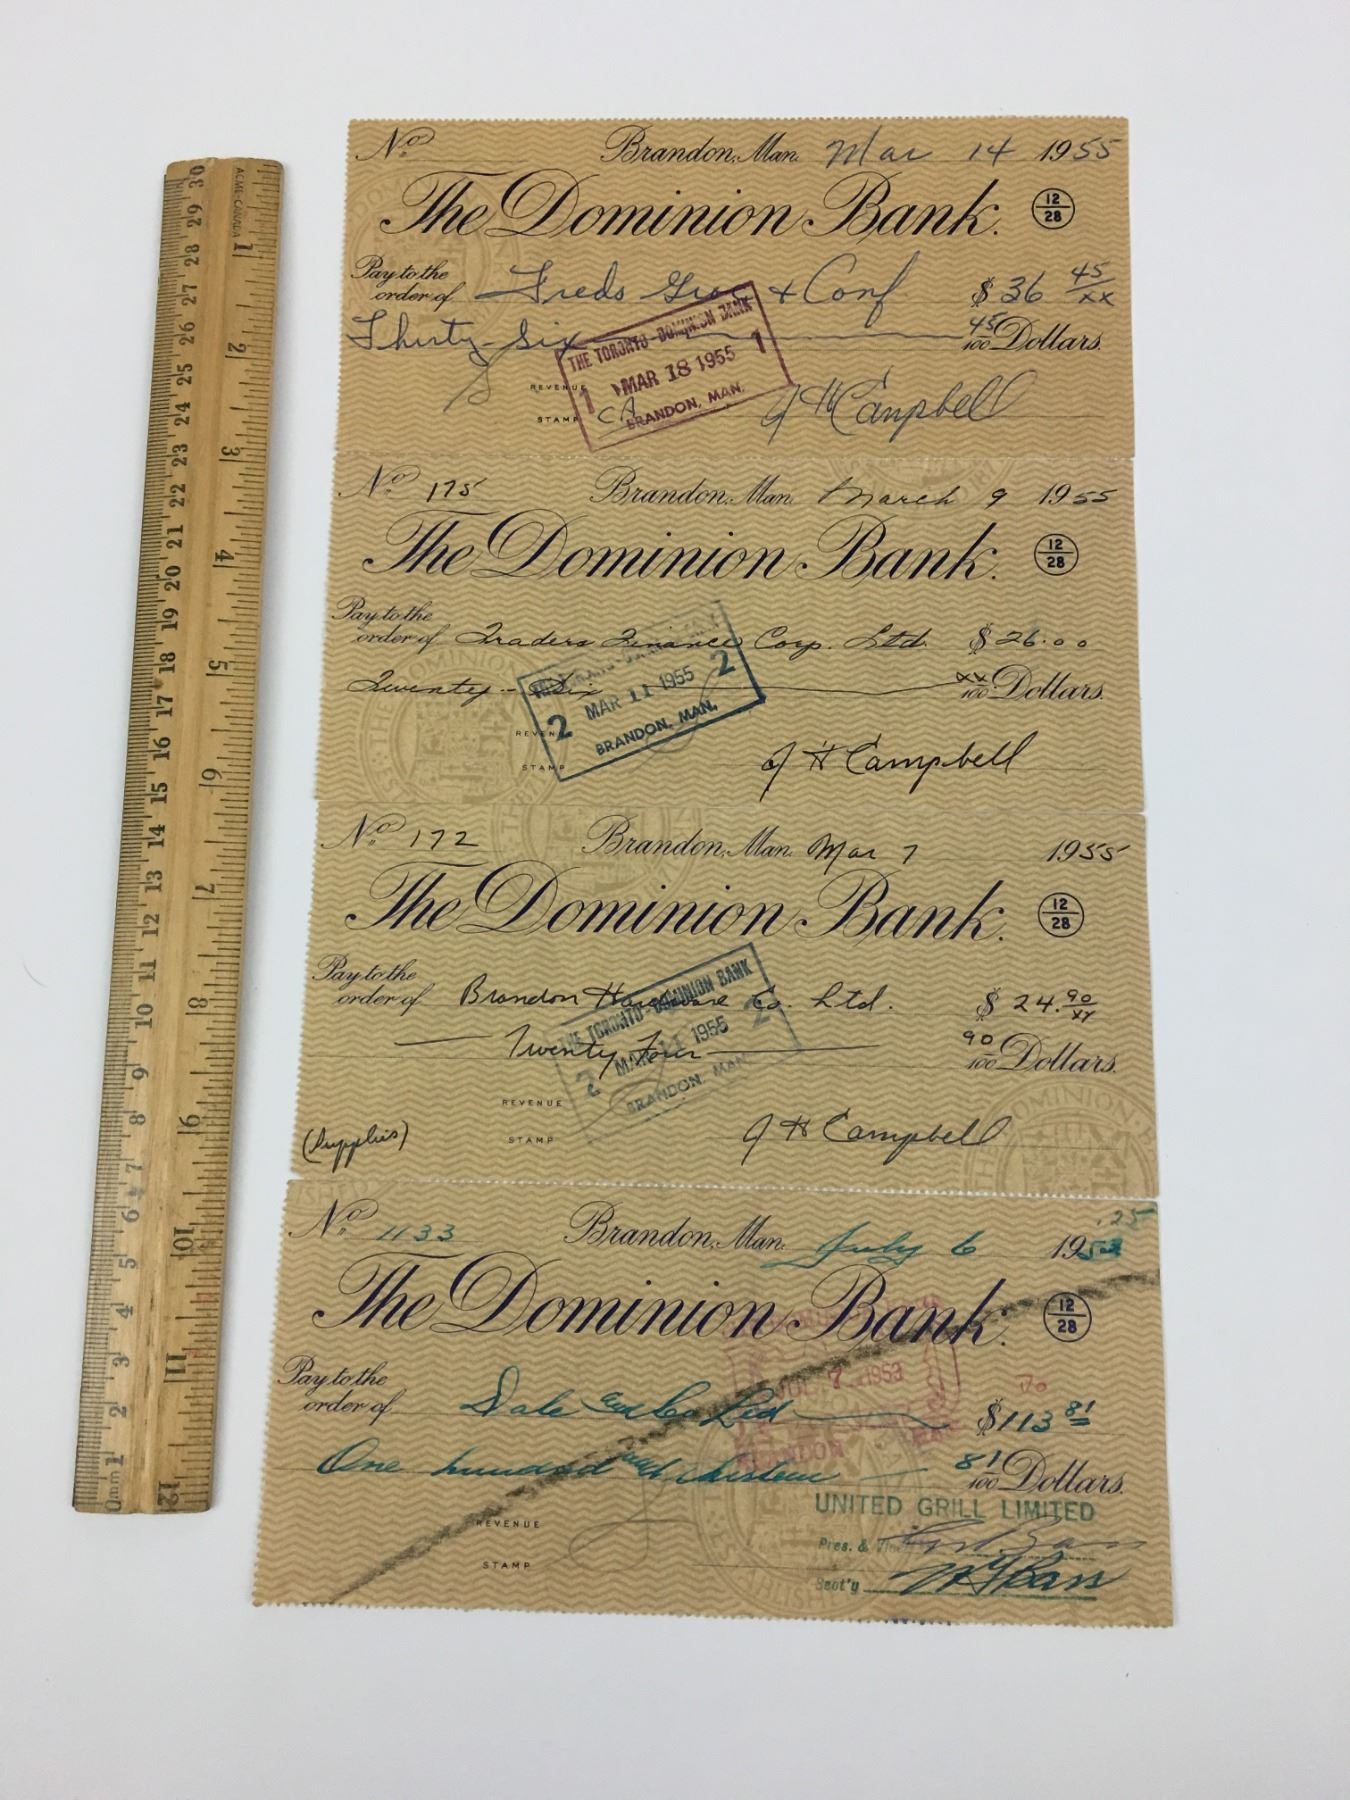 No. Brandon, Man. Mar 14 1955
The Dominion Bank. 12/28
Pay to the order of Freds Groc & Conf $36 45/xx
Thirty-Six 45/100 Dollars.
THE TORONTO-DOMINION BANK
1 MAR 18 1955 1
BRANDON, MAN.
REVENUE
STAMP
J H Campbell
No. 175 Brandon, Man. March 9 1955
The Dominion Bank. 12/28
Pay to the order of Traders Finance Corp. Ltd. $26.00
Twenty-Six xx/100 Dollars.
2 MAR 11 1955 2
BRANDON, MAN.
REVENUE
STAMP
J H Campbell
No. 172 Brandon, Man. Mar 7 1955
The Dominion Bank. 12/28
Pay to the order of Brandon Hardware Co. Ltd. $24.90/xx
Twenty Four 90/100 Dollars.
THE TORONTO-DOMINION BANK
2 MAR 11 1955 2
BRANDON, MAN.
REVENUE
STAMP
(Supplies)
J H Campbell
.25
No. 1133 Brandon, Man. July 6 1953
The Dominion Bank. 12/28
JUL 7 1953
BRANDON
Pay to the order of Dale and Co Ltd $113 81
One hundred and thirteen 81/100 Dollars.
UNITED GRILL LIMITED
REVENUE
STAMP
Pres. &
Sect'y
ACME-CANADA
30 29 28 27 26 25 24 23 22 21 20 19 18 17 16 15 14 13 12 11 10 9 8 7 6 5 4 3 2 1 0mm
1 2 3 4 5 6 7 8 9 10 11 12